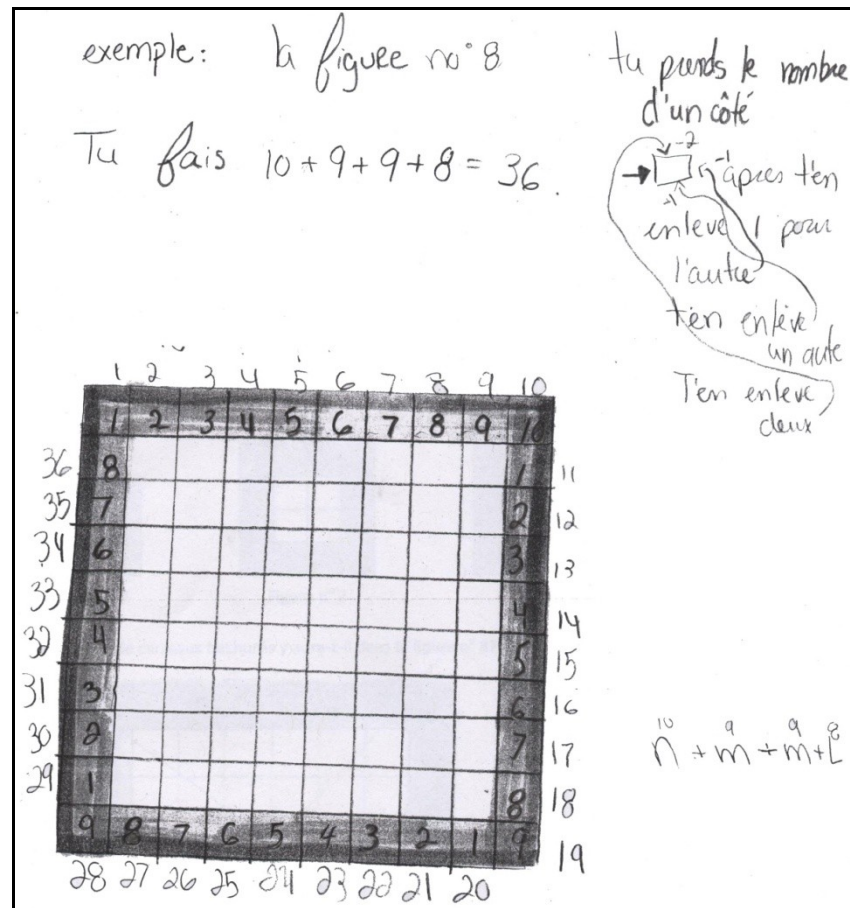 exemple: la figure no° 8
Tu fais 10 + 9 + 9 + 8 = 36.
tu prends le nombre
d'un côté
-2
-1
-1
après t'en
enlève 1 pour
l'autre
t'en enlève
un aute
T'en enleve
deux
1 2 3 4 5 6 7 8 9 10
1 2 3 4 5 6 7 8 9 10
36 8 1 11
35 7 2 12
34 6 3 13
33 5 4 14
32 4 5 15
31 3 6 16
30 2 7 17
29 1 8 18
9 8 7 6 5 4 3 2 1 9 19
28 27 26 25 24 23 22 21 20
10 9 9 8
n + m + m + L